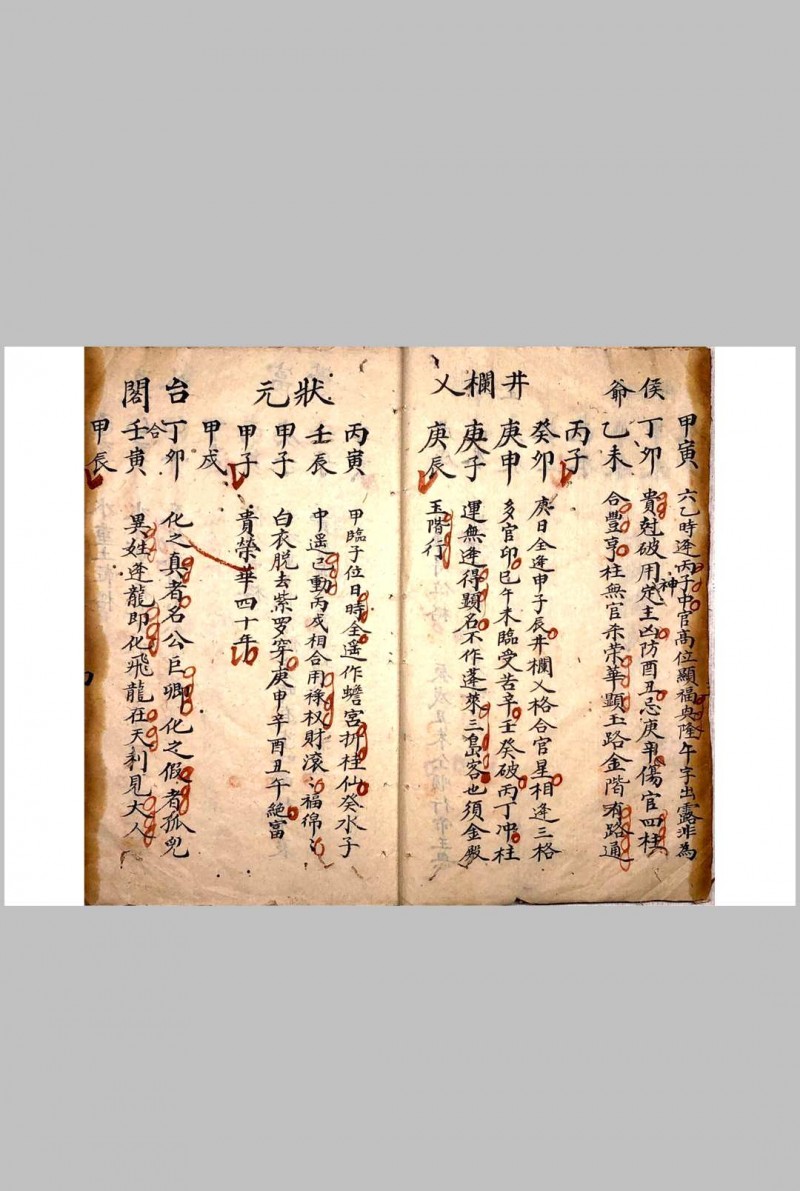 侯爷
甲寅 六乙時逢丙子中官高位顯福興隆午字出露非為
丁卯 貴尅破用神定主凶防酉丑忌庚申傷官四柱
乙未 合豐亨柱無官杀荣華顯玉路金階有路通
丙子
井欄乂
癸卯 庚日全逢申子辰井欄乂格合官星相逢三格
庚申 多官印巳午未臨受苦辛壬癸破丙丁冲柱
庚子 運無逢得顕名不作蓬萊三島客也須金殿
庚辰 玉階行
狀元
丙寅 甲臨子位日時全遥作蟾宮折桂仙癸水子
壬辰 中遥巳動丙戌相合用祿权財滚〻福綿〻
甲子 白衣脱去紫罗穿庚申辛酉丑午絶富
甲子 貴榮華四十年
甲戌
台閣
丁卯 化之真者名公巨卿化之假者孤兒
合
壬寅 異姓逢龍即化飛龍在天利見大人
甲辰